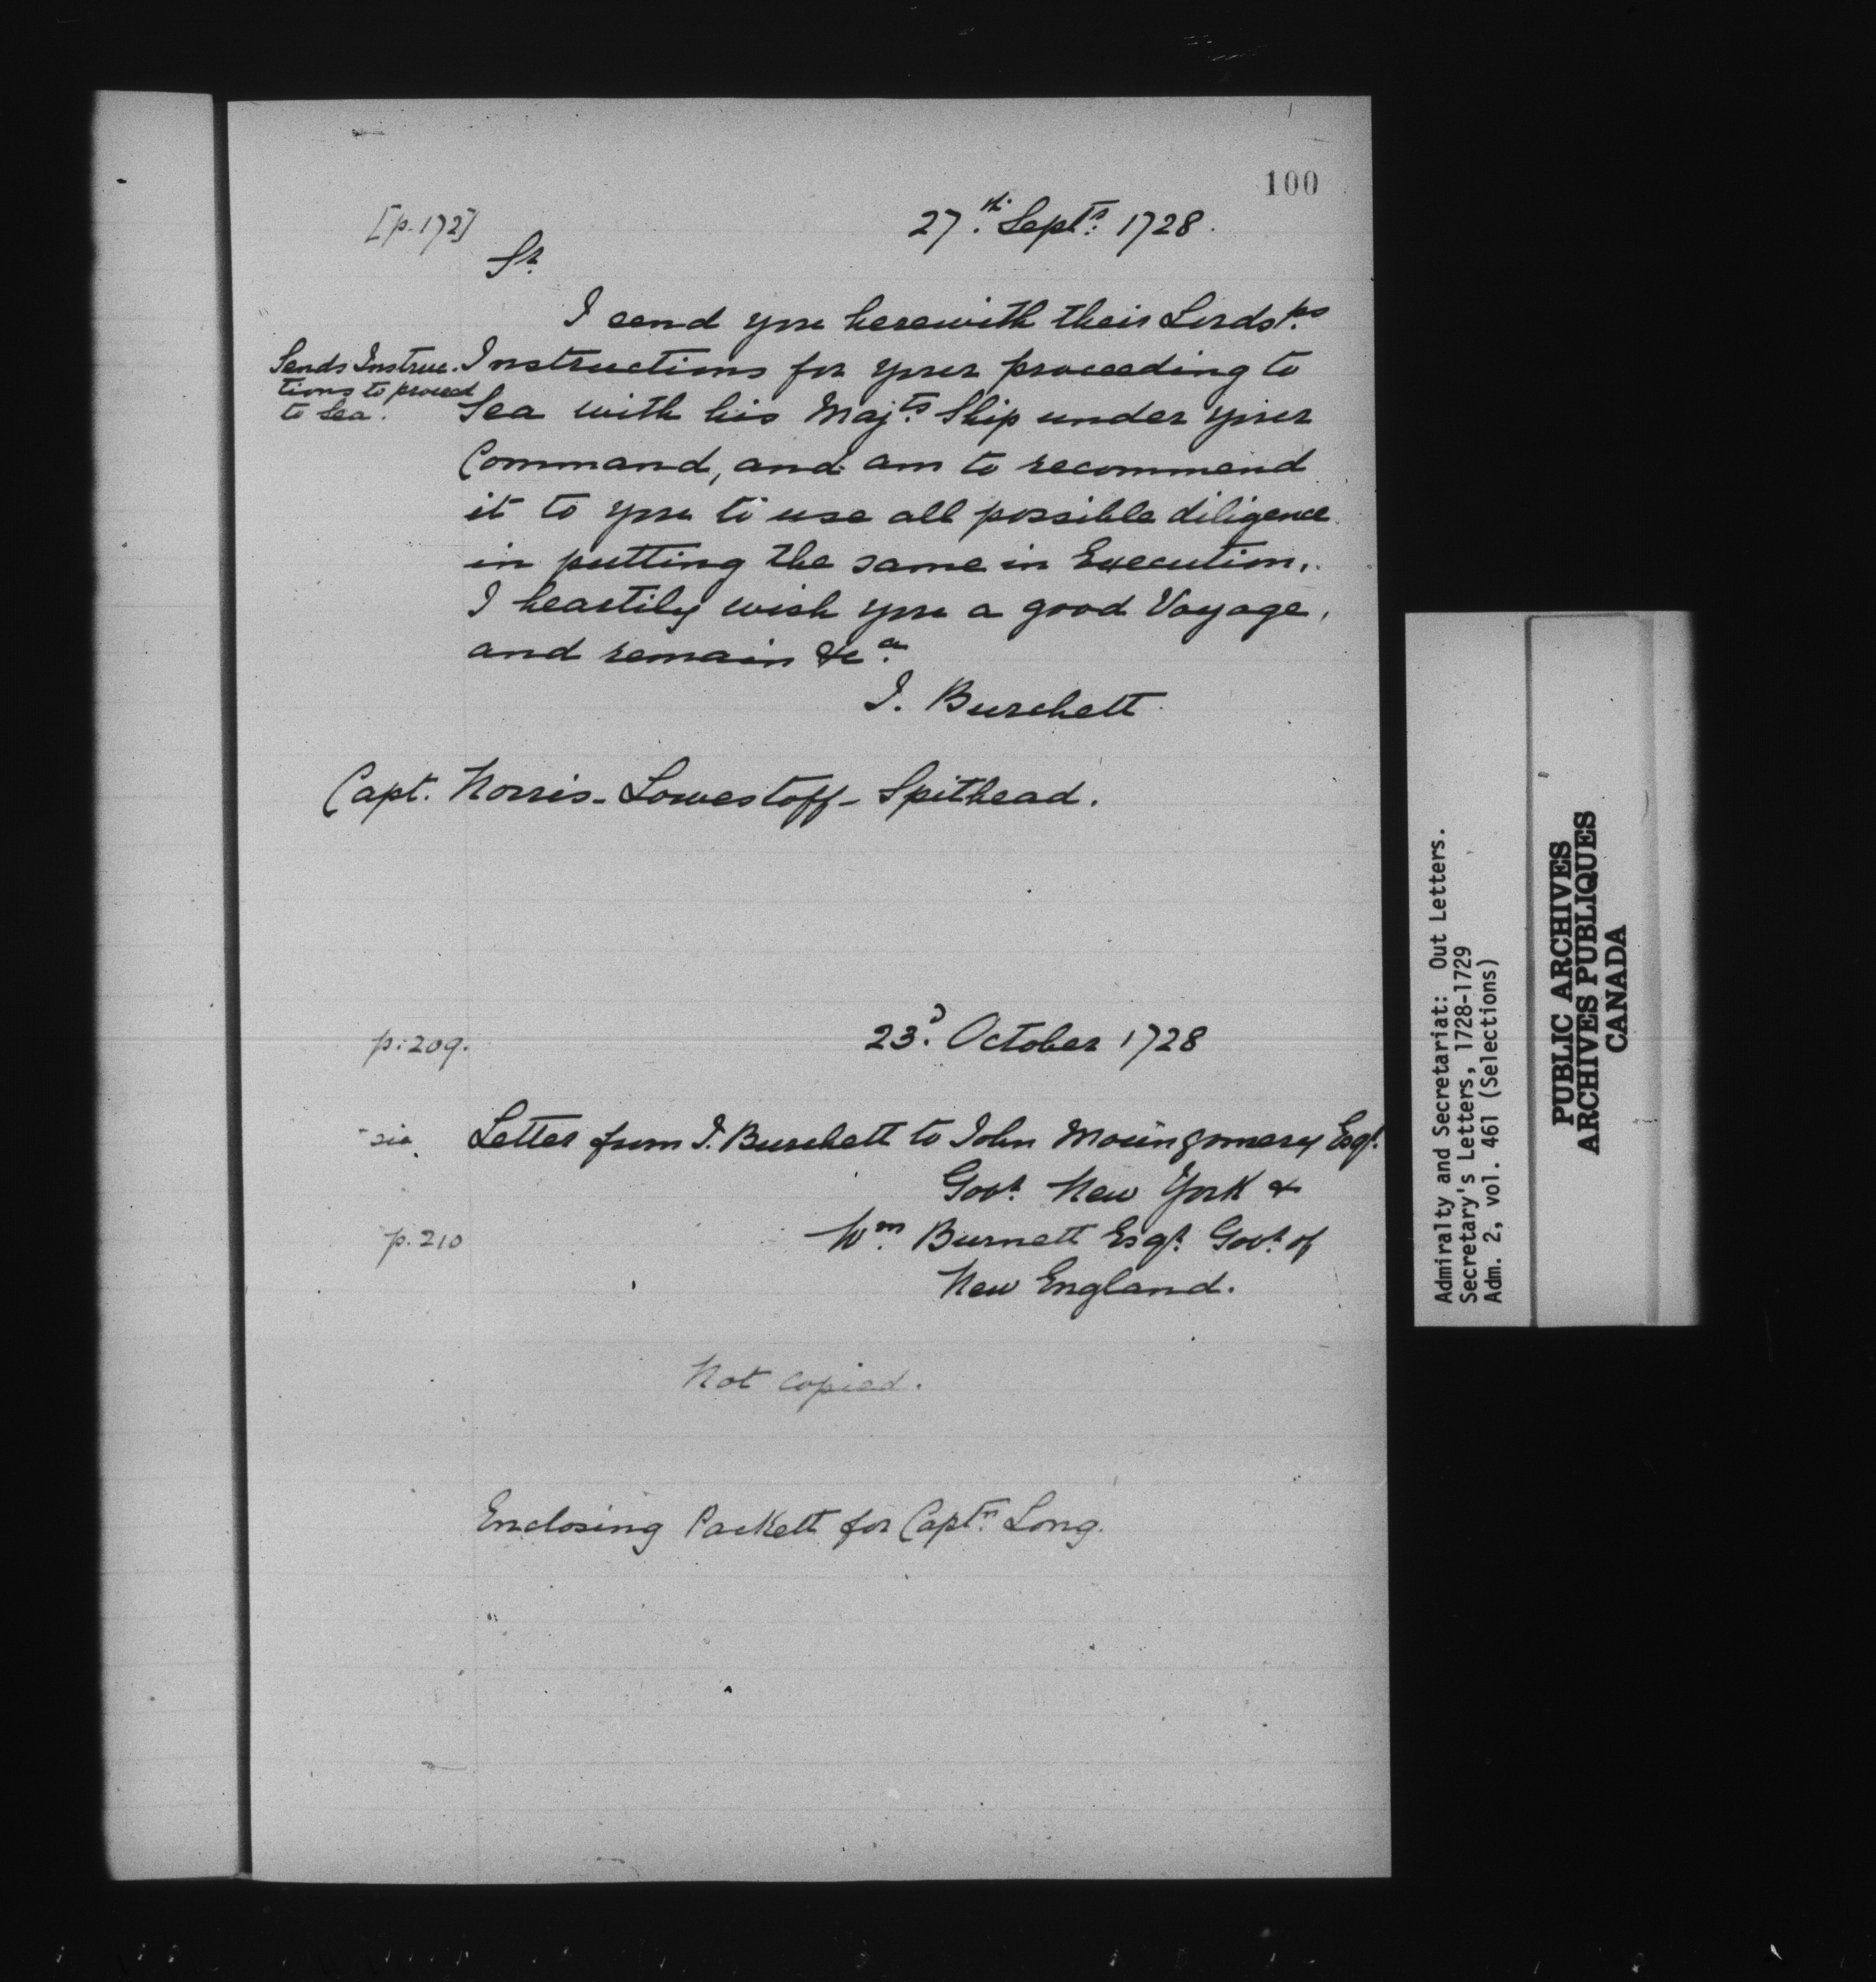 100
[p. 172]
27.th Septr: 1728.
Sr.
I send you herewith their Lordsps.
Sends Instruc-
tions to proceed
to Sea.
Instructions for your proceeding to
Sea with his Majts. Ship under your
Command, and am to recommend
it to you to use all possible diligence
in putting the same in Execution,
I heartily wish you a good Voyage,
and remain &ca.
J. Burchett
Capt. Norris - Lowestoff - Spithead.
p. 209.
23.d October 1728
sic.
Letter from J. Burchett to John Moungomery Esqr.
Govr. New York &
p. 210
Wm. Burnett Esqr. Govr. of
New England.
Not copied.
Enclosing Packett for Captn. Long.
Admiralty and Secretariat: Out Letters.
Secretary's Letters, 1728-1729
Adm. 2, vol. 461 (Selections)
PUBLIC ARCHIVES
ARCHIVES PUBLIQUES
CANADA